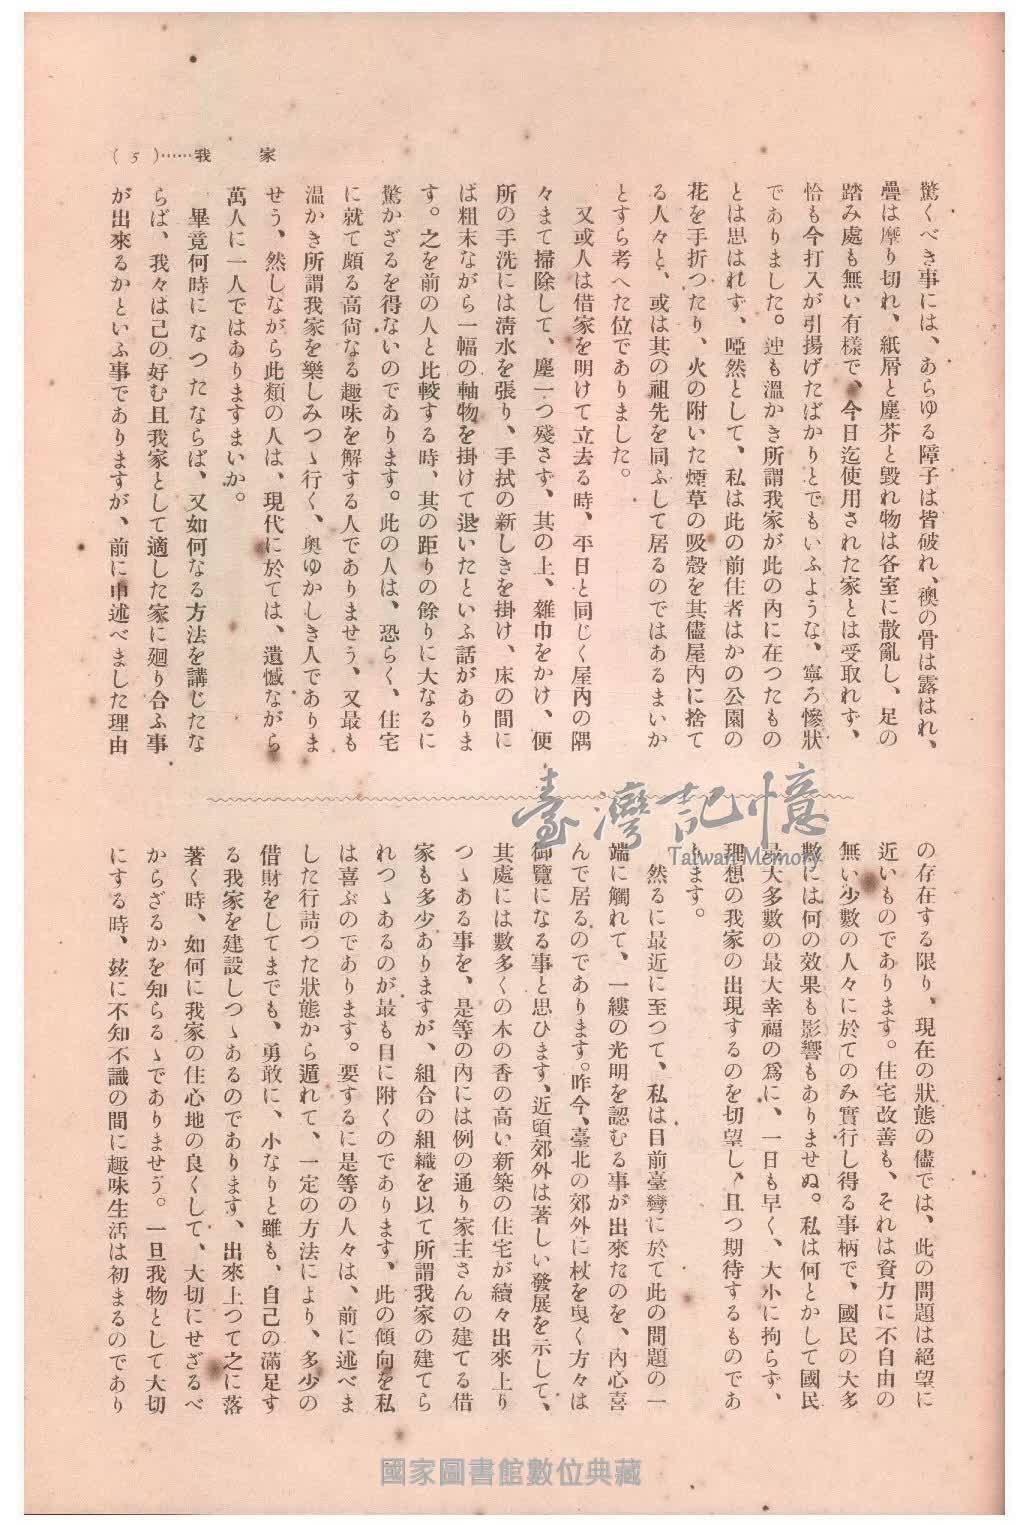 (5)……我家
驚くべき事には、あらゆる障子は皆破れ、襖の骨は露はれ、
疊は摩り切れ、紙屑と塵芥と毀れ物は各室に散亂し、足の
踏み處も無い有樣で、今日迄使用された家とは受取れず、
恰も今打入が引揚げたばかりとでもいふような、寧ろ慘狀
でありました。迚も溫かき所謂我家が此の內に在つたもの
とは思はれず、啞然として、私は此の前住者はかの公園の
花を手折つたり、火の附いた煙草の吸殼を其儘屋內に捨て
る人々と、或は其の祖先を同ふして居るのではあるまいか
とすら考へた位でありました。
又或人は借家を明けて立去る時、平日と同じく屋內の隅
々まて掃除して、塵一つ殘さず、其の上、雜巾をかけ、便
所の手洗には淸水を張り、手拭の新しきを掛け、床の間に
ば粗末ながら一幅の軸物を掛けて退いたといふ話がありま
す。之を前の人と比較する時、其の距りの餘りに大なるに
驚かざるを得ないのであります。此の人は、恐らく、住宅
に就て頗る高尙なる趣味を解する人でありませう、又最も
溫かき所謂我家を樂しみつゝ行く、奧ゆかしき人でありま
せう、然しながら此類の人は、現代に於ては、遺憾ながら
萬人に一人ではありますまいか。
畢竟何時になつたならば、又如何なる方法を講じたな
らば、我々は己の好む且我家として適した家に廻り合ふ事
が出來るかといふ事でありますが、前に申述べました理由
の存在する限り、現在の狀態の儘では、此の問題は絕望に
近いものであります。住宅改善も、それは資力に不自由の
無い少數の人々に於てのみ實行し得る事柄で、國民の大多
數には何の效果も影響もありませぬ。私は何とかして國民
最大多數の最大幸福の爲に、一日も早く、大小に拘らず、
理想の我家の出現するのを切望し、且つ期待するものであ
ります。
然るに最近に至つて、私は目前臺灣に於て此の問題の一
端に觸れて、一縷の光明を認むる事が出來たのを、內心喜
んで居るのであります。昨今、臺北の郊外に杖を曳く方々は
御覽になる事と思ひます、近頃郊外は著しい發展を示して、
其處には數多くの木の香の高い新築の住宅が續々出來上り
つゝある事を、是等の內には例の通り家主さんの建てる借
家も多少ありますが、組合の組織を以て所謂我家の建てら
れつゝあるのが最も目に附くのであります、此の傾向を私
は喜ぶのであります。要するに是等の人々は、前に述べま
した行詰つた狀態から遁れて、一定の方法により、多少の
借財をしてまでも、勇敢に、小なりと雖も、自己の滿足す
る我家を建設しつゝあるのであります、出來上つて之に落
著く時、如何に我家の住心地の良くして、大切にせざるべ
からざるかを知らるゝでありませう。一旦我物として大切
にする時、玆に不知不識の間に趣味生活は初まるのであり
臺灣記憶
Taiwan Memory
國家圖書館數位典藏